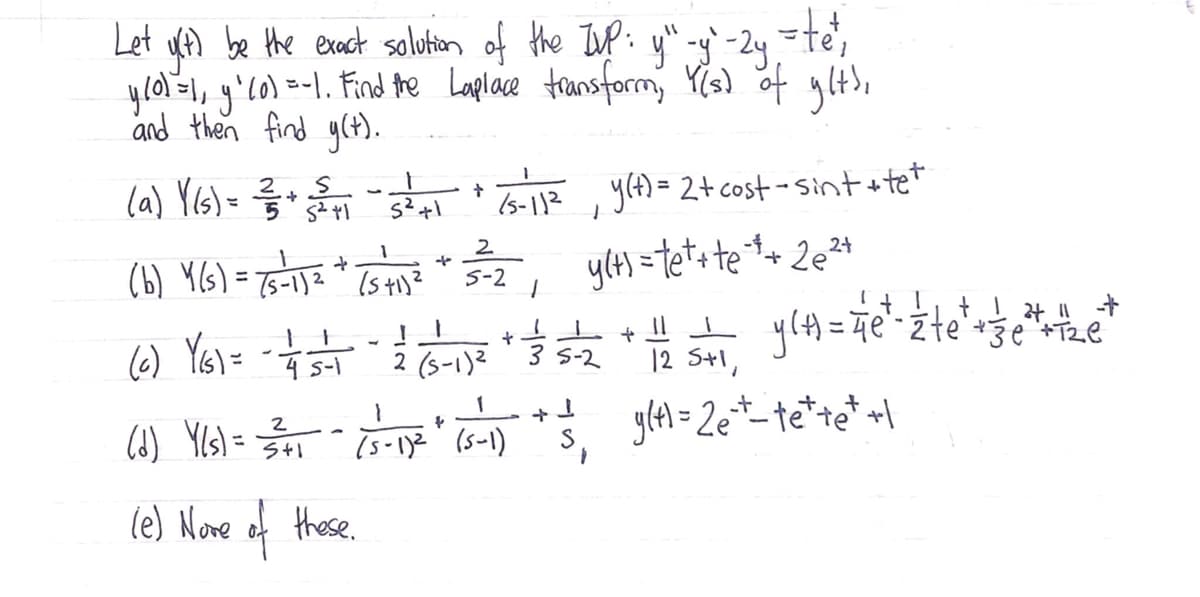 Let y(t) be the exact solution of the IVP: y'' - y' - 2y = te^t,
y(0) = 1, y'(0) = -1. Find the Laplace transform, Y(s) of y(t),
and then find y(t).
(a) Y(s) = 2/5 + s/(s²+1) - 1/(s²+1) + 1/(s-1)², y(t) = 2 + cost - sint + te^t
(b) Y(s) = 1/(s-1)² + 1/(s+1)² + 2/(s-2), y(t) = te^t + te^-t + 2e^2t
(c) Y(s) = -1/4 1/(s-1) - 1/2 1/(s-1)² + 1/3 1/(s-2) + 11/12 1/(s+1), y(t) = 1/4 e^t - 1/2 te^t + 1/3 e^2t + 11/12 e^-t
(d) Y(s) = 2/(s+1) - 1/(s-1)² + 1/(s-1) + 1/s, y(t) = 2e^-t - te^t + e^t + 1
(e) None of these.